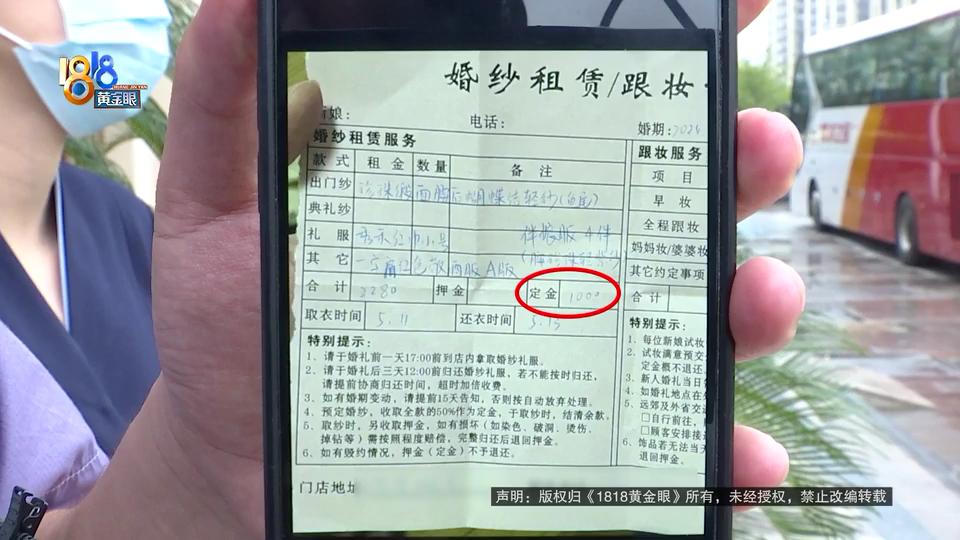 1818
HUANG JIN YAN
黄金眼
婚纱租赁/跟妆
娘:
电话:
婚期:
婚纱租赁服务
跟妆服务
款式 租金 数量 备注
项目
出门纱
早妆
典礼纱
全程跟妆
礼服 伴娘服 4件
妈妈妆/婆婆妆
其它 一字肩红色敬酒服A版
其它约定事项
合计 2280 押金 定金 1000
合计
取衣时间 5.11 还衣时间
特别提示:
1、请于婚礼前一天17:00前到店内拿取婚纱礼服。
2、请于婚礼后三天12:00前归还婚纱礼服,若不能按时归还,
请提前协商归还时间,超时加倍收费。
3、如有婚期变动,请提前15天告知,否则按自动放弃处理。
4、预定婚纱,收取全款的50%作为定金,于取纱时,结清余款。
5、取纱时,另收取押金,如有损坏(如染色、破洞、烫伤、
掉钻等)需按照程度赔偿,完整归还后退回押金。
6、如有毁约情况,押金(定金)不予退还。
特别提示:
1、每位新娘试妆
2、试妆满意预交
定金概不退还
3、新人婚礼当日
4、如婚礼地点在
5、远郊及外省交
□自行前往,
□顾客安排接
6、饰品若无法当天
退回押金。
门店地址
声明:版权归《1818黄金眼》所有,未经授权,禁止改编转载